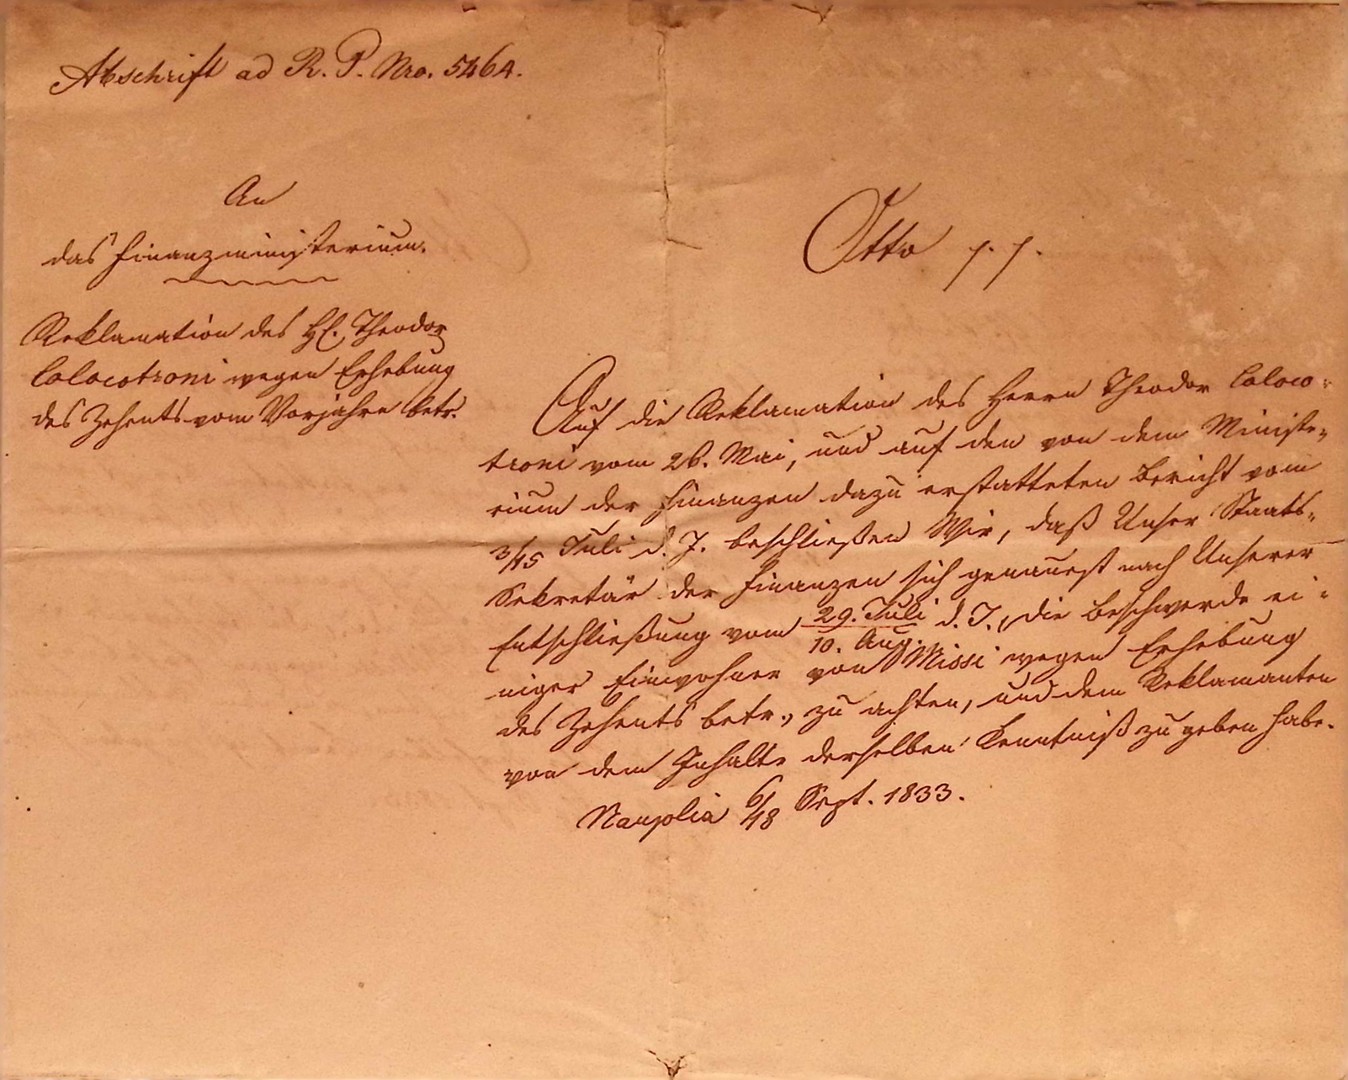 Abschrift ad R. P. Nro. 5464.
An
das Finanzministerium.
Reklamation des H. Theodor
Colocotroni wegen Erhebung
des Zehents vom Vorjahre betr.
Otto p. p.
Auf die Reklamation des Herrn Theodor Coloco-
troni vom 26. Mai, und auf den von dem Ministe-
rium der Finanzen dazu erstatteten Bericht vom
3/15 Juli d. J. beschließen Wir, daß Unser Staats-
Sekretär der Finanzen sich genauest nach Unserer
Entschließung vom 29. Juli / 10. Aug. d. J., die Beschwerde ei-
niger Einwohner von Missi wegen Erhebung
des Zehents betr., zu achten, und dem Reklamanten
von dem Inhalte derselben Kenntniß zu geben habe.
Nauplia 6/18 Sept. 1833.